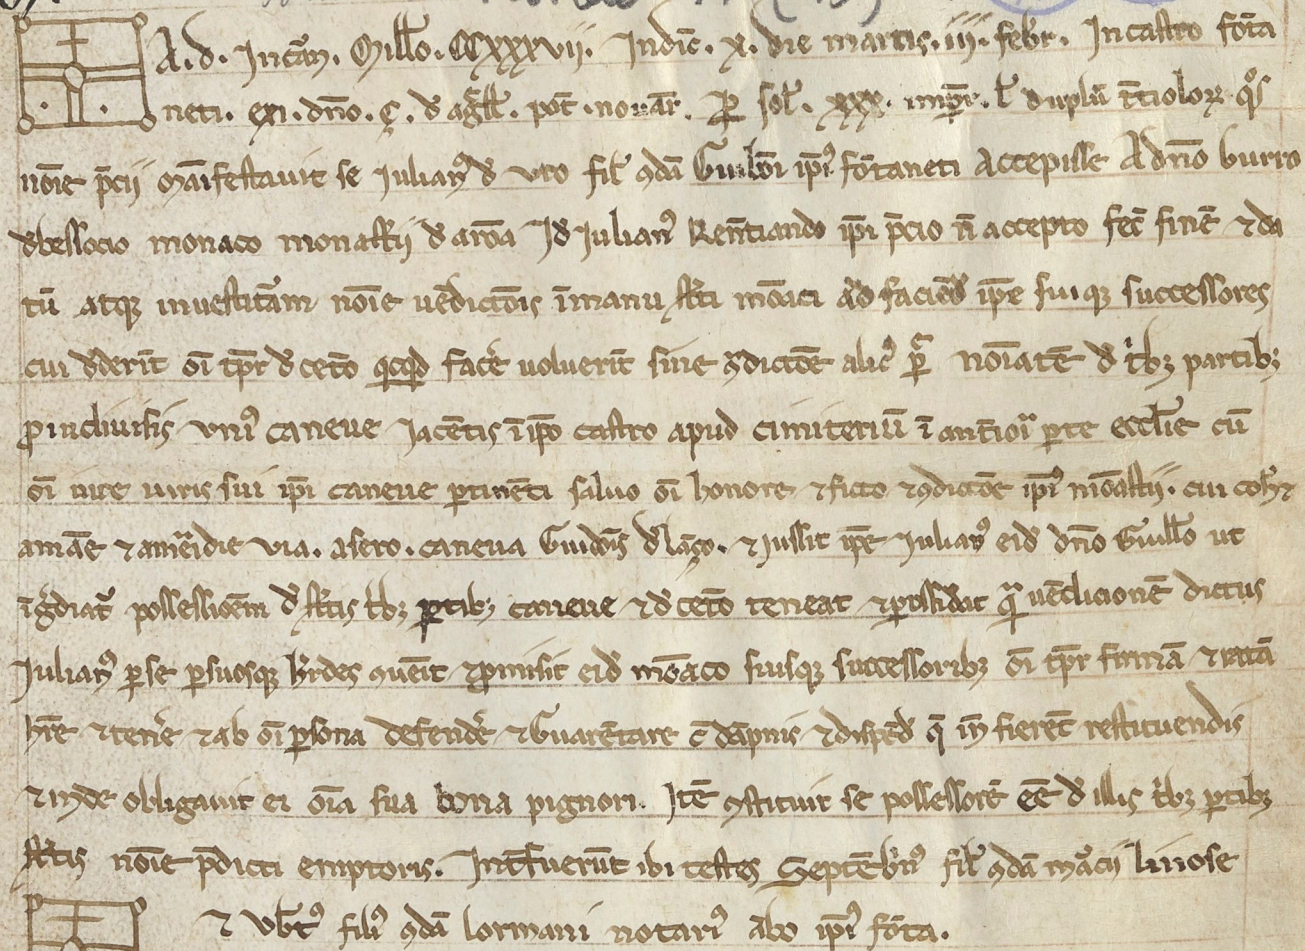 A. d. Incarn̄. Mill̄o. CCxxxvii. Indic̄. x. die martis. iii. febr̄. In castro fōta
neti. exn. dn̄o. ç. d̄ agll̄. pot̄. nouar̄. ꝑ sol̄. xxx. imp̄r. l̄ duplū t̄cioloꝝ qͦs
noīe p̄cii māifestauit se Iulianꝰ d̄ uro fil̄ ꝯdā Guil̄oi ip̄iꝰ fōtaneti accepisse A dn̄o burro
d̄ bellocio monaco monast̄ii d̄ arōa Id̄ Iulianꝰ Ren̄tiando ip̄i p̄cio n̄ accepto fec̄ finē ⁊ da
tū atqꝫ inuestitām noīe uēdictōis ī manu st̄i mōaci ad faciēd̄ ip̄e suiqꝫ successores
cui d̄derīt oī tp̄r d̄ cetō qͥcqͥd facē uoluerīt sine ꝯdictōe alicꝰ ꝑ noīatē d̄ tͥbꝫ partibꝫ
ꝓ indiuisis unīꝰ caneue Iacētis ī ip̄o castro apud cimiteriū ī antͥioͥ ꝑte eccl̄ie cū
oī iure iuris sui ip̄i caneue ꝑtinēti saluo oī honore ⁊ ficto ⁊ ꝯdictōe ip̄iꝰ mōast̄ii. cui coh̄ꝫ
a māe ⁊ a meͥidie via. a sero. caneua Guidōis d̄ lāço. ⁊ iussit ip̄e Iulianꝰ eid̄ dn̄o Guill̄o ut
īgͥdiat̄ possessioēm d̄ st̄is tͥbꝫ ꝑtibꝫ caneue ⁊ d̄ cetō teneat ⁊ possideat qͣ uēdicionē dictus
Iulianꝰ ꝑ se ꝑ suosqꝫ h̄rdes ꝯuēit ⁊ ꝓmisit eid̄ mōaco suisqꝫ successoribꝫ oī tp̄r firmā ⁊ ratā
h̄re ⁊ tenē ⁊ ab oī ꝑsona defendē ⁊ Guarētare c̄ dāpnis ⁊ dispēd̄ q̄ in̄ fierēt restituendis
⁊ inde obligauit ei oīa sua bona pignori. Itē ꝯstituit se possessorē eē d̄ illis tͥbꝫ ꝑtibꝫ
st̄is noīe p̄dicti emptoris. Int̄fuerūt ibi testes Septēb̄nꝰ fil̄ ꝯdā māͦcii linose
⁊ Vb̄tꝰ filiꝰ ꝯdā lormani notariꝰ abo ip̄iꝰ fōta.